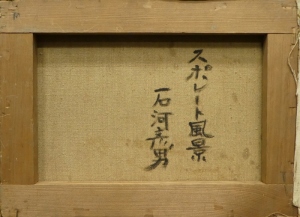 スポレート風景
石河彦男